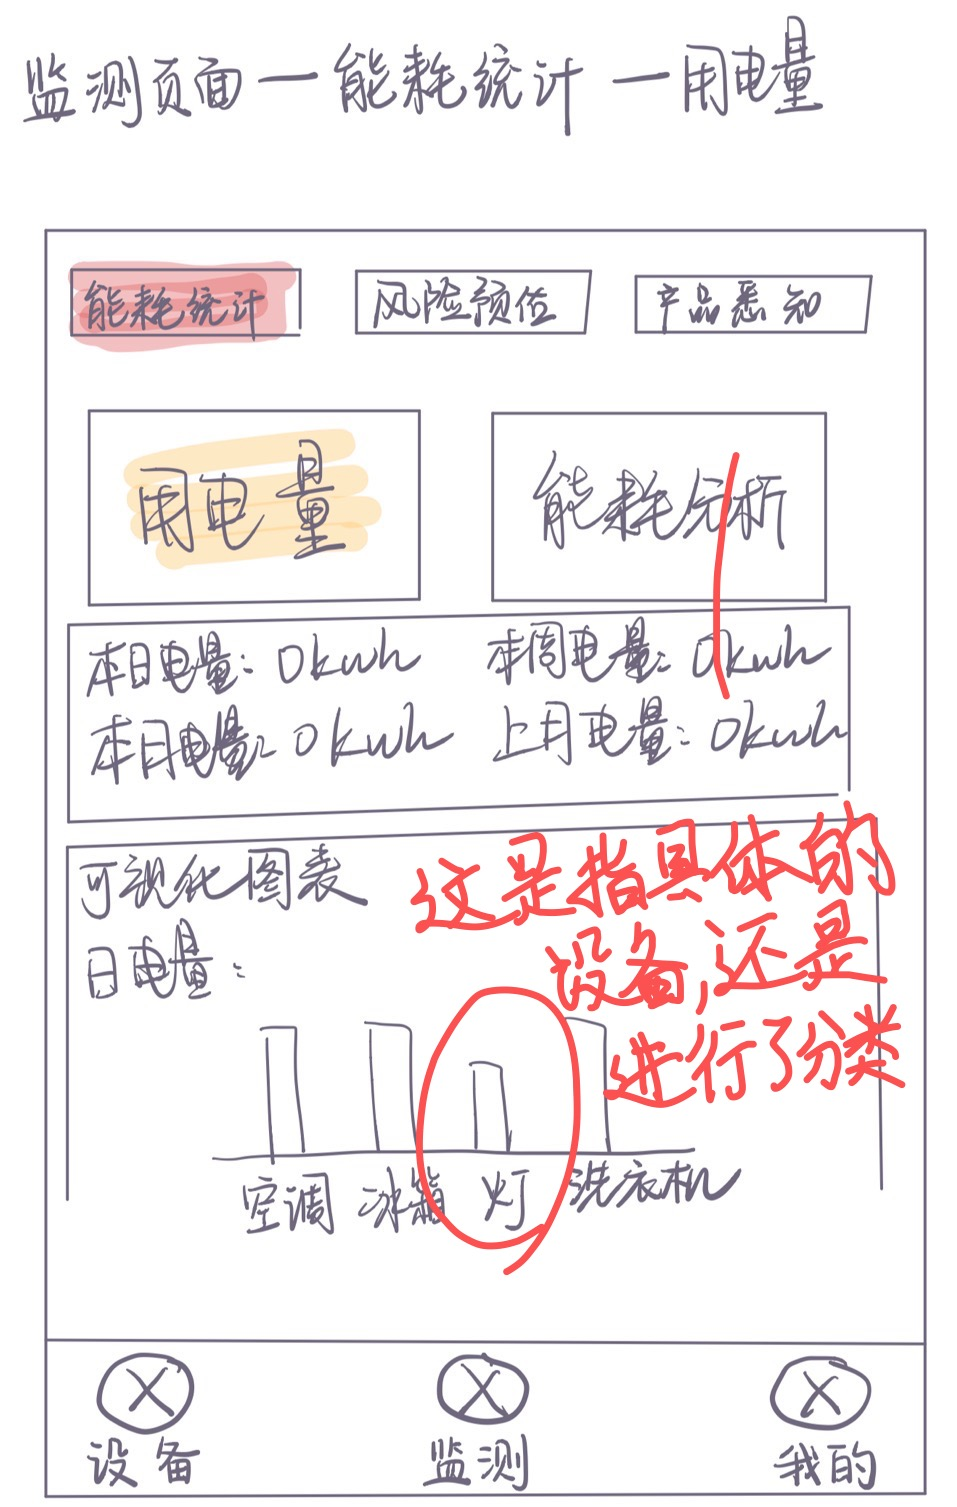 监测页面一能耗统计一用电量
能耗统计 风险预估 产品悉知
用电量 能耗分析
本日电量: 0kwh 本周电量: 0kwh
本月电量: 0kwh 上月电量: 0kwh
可视化图表
日电量:
这是指具体的
设备,还是
进行了分类
空调 冰箱 灯 洗衣机
设备 监测 我的